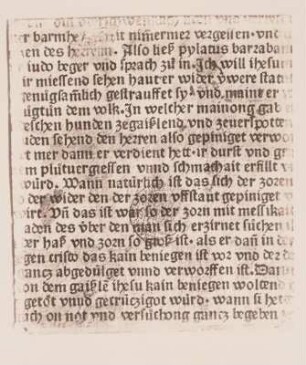 r barmhertzikeit nimmermer vergessen vnd
nen des herrenn. Also ließ pylatus barraban
iudo beger vnd sprach zu in. Ich will ihesum
ir miessend sehen haut er wider vwere stat
genugsamlich gestrauffet sy. vnd maint er
ugtun dem wolk. In welcher mainong gab
eschen hunden zegaißlend. vnd zeuerspotte
uden sehend den herren also gepiniget verwo
t mer dann er verdient hett. ir durst vnd gr
m plutuergiessen vnnd schmachait erfillt v
würd. Wann natürlich ist das sich der zoren
der wider den der zoren vffstaut gepiniget
irt. Vn das ist war so der zorn mit messikait
aden des vber den man sich erzirnet suchen i
er haß vnd zorn so groß ist. als er dan in d
gen cristo das kain beniegen ist vor vnd der
ancz abgedülget vnnd verworffen ist. Dar
on dem gaißlen ihesu kain beniegen woltend
getöt vnnd gecrüczigot würd. wann si het
ich on not vnd versüchong gancz begeben